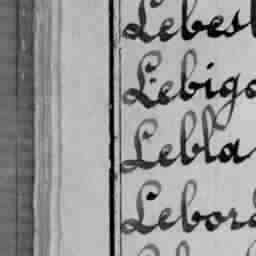 Lebest
Lebigo
Lebla
Lebord